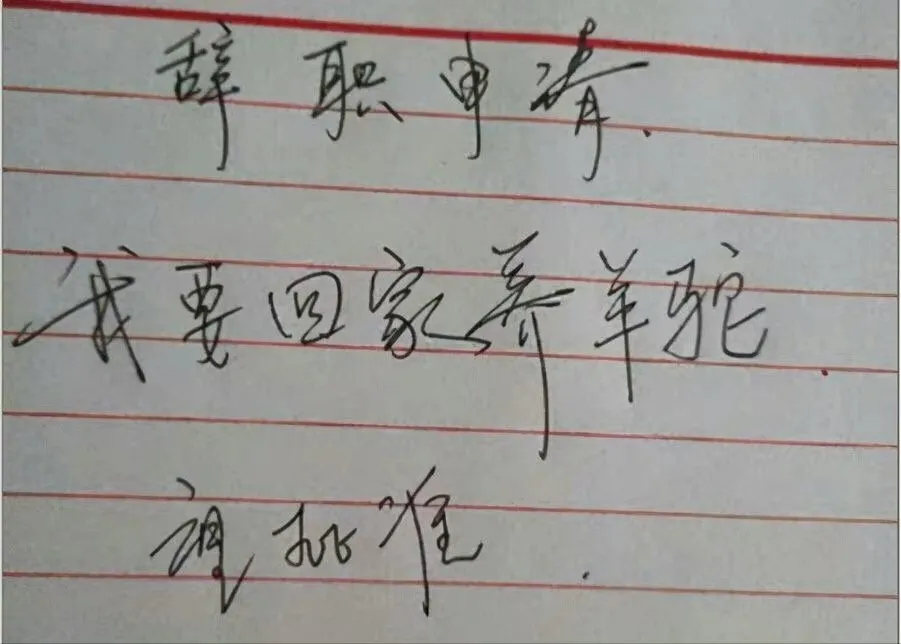 辞职申请.
我要回家养羊驼.
望批准.